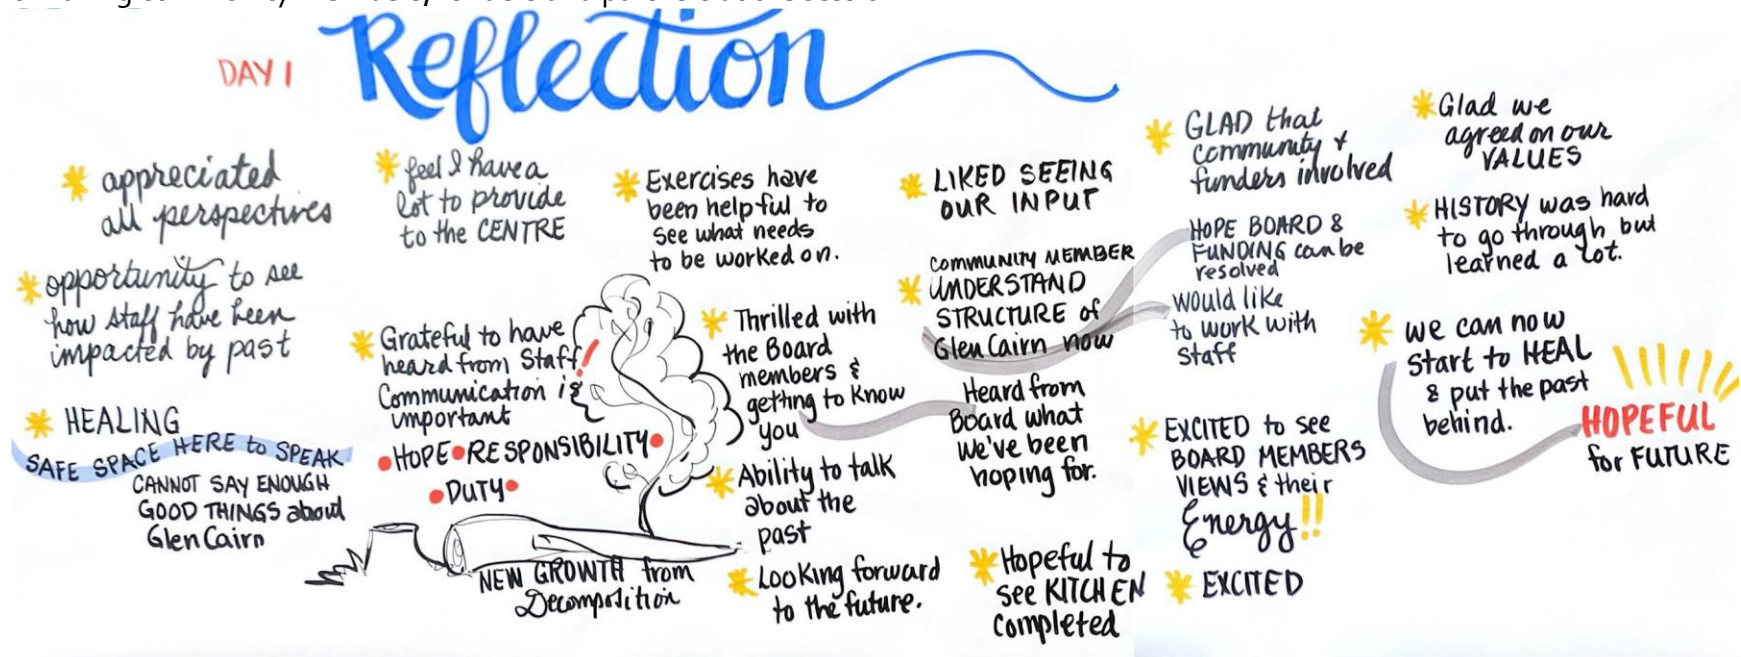 DAY 1
Reflection
* appreciated
all perspectives
* opportunity to see
how staff have been
impacted by past
* HEALING
SAFE SPACE HERE to SPEAK
CANNOT SAY ENOUGH
GOOD THINGS about
Glen Cairn
* feel I have a
lot to provide
to the CENTRE
* Grateful to have
heard from Staff!
Communication is
important
• HOPE • RESPONSIBILITY •
• DUTY •
NEW GROWTH from
Decomposition
* Exercises have
been helpful to
see what needs
to be worked on.
* Thrilled with
the Board
members &
getting to know
you
* Ability to talk
about the
past
* Looking forward
to the future.
* LIKED SEEING
OUR INPUT
COMMUNITY MEMBER
* UNDERSTAND
STRUCTURE of
Glen Cairn now
Heard from
Board what
we've been
hoping for.
* Hopeful to
see KITCHEN
completed
* GLAD that
community +
funders involved
HOPE BOARD &
FUNDING can be
resolved
would like
to work with
Staff
* EXCITED to see
BOARD MEMBERS
VIEWS & their
Energy!!
* EXCITED
* Glad we
agreed on our
VALUES
* HISTORY was hard
to go through but
learned a lot.
* we can now
start to HEAL
& put the past
behind.
HOPEFUL
for FUTURE